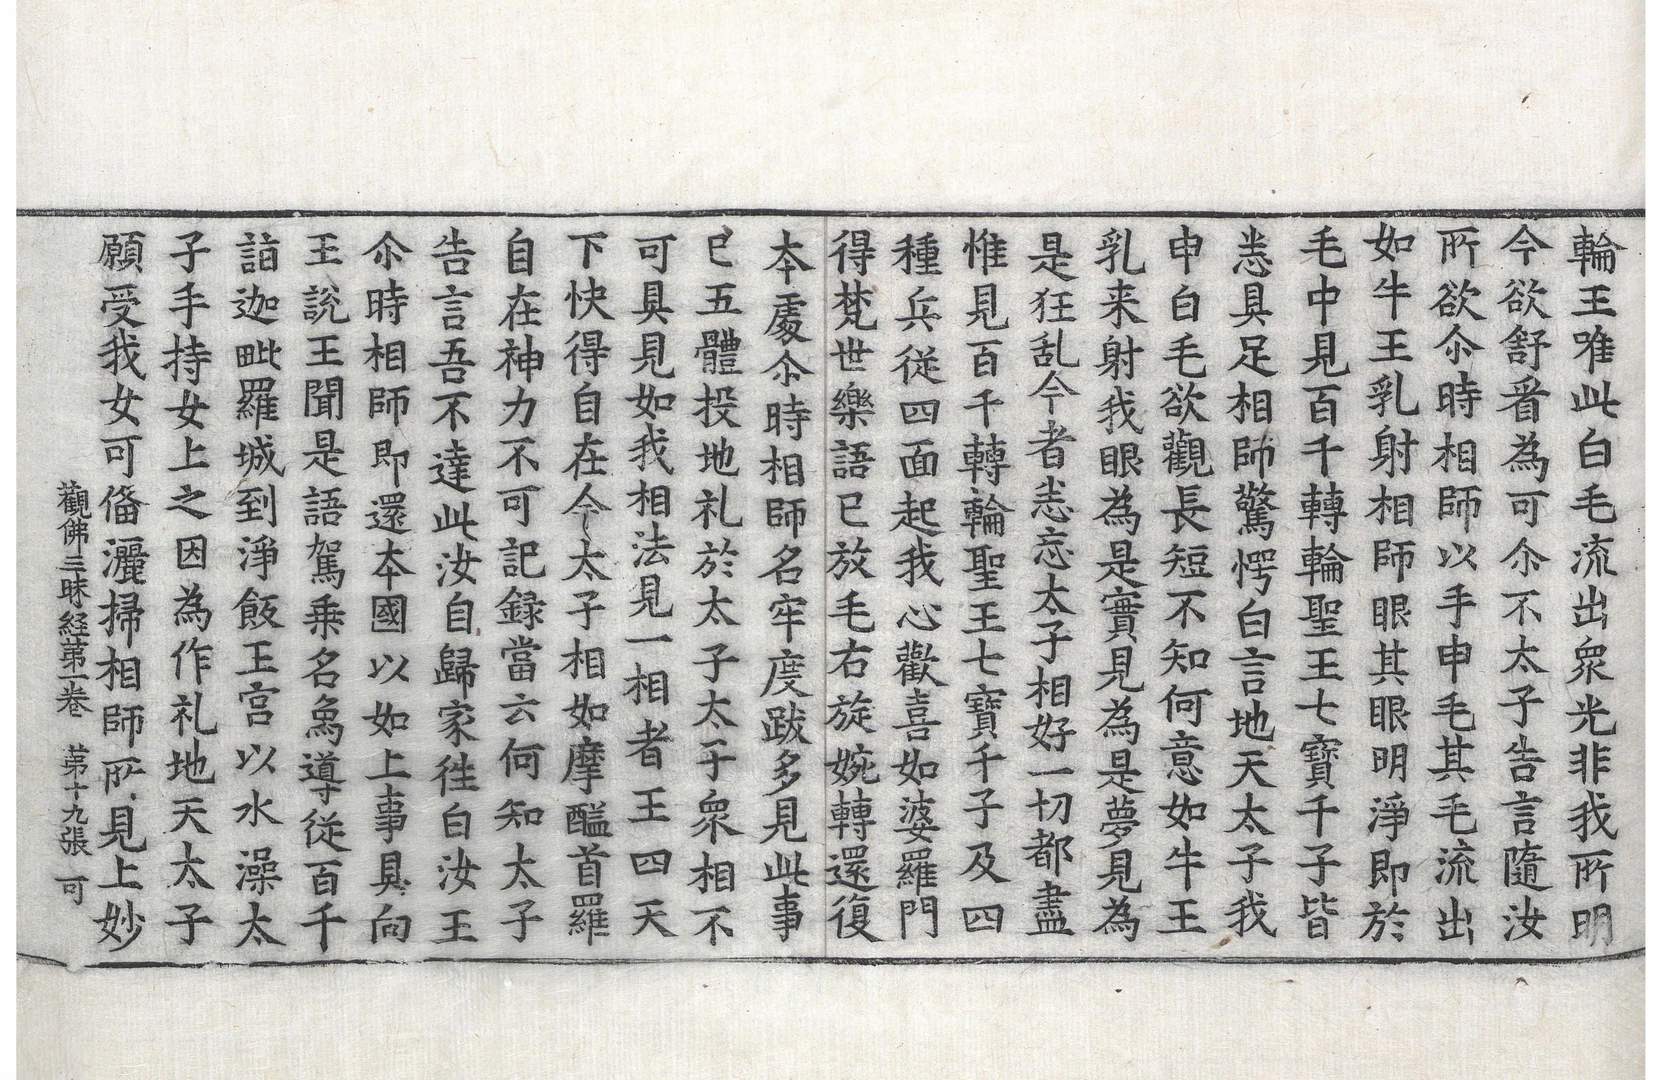 輪王唯此白毛流出衆光非我所明
今欲舒看為可尒不太子告言隨汝
所欲尒時相師以手申毛其毛流出
如牛王乳射相師眼其眼明淨即於
毛中見百千轉輪聖王七寶千子皆
悉具足相師驚愕白言地天太子我
申白毛欲觀長短不知何意如牛王
乳来射我眼為是實見為是夢見為
是狂乱今者悉忘太子相好一切都盡
惟見百千轉輪聖王七寶千子及四
種兵從四面起我心歡喜如婆羅門
得梵世樂語已放毛右旋婉轉還復
本處尒時相師名牢度跋多見此事
已五體投地礼於太子太子衆相不
可具見如我相法見一相者王四天
下快得自在今太子相如摩醯首羅
自在神力不可記録當云何知太子
告言吾不達此汝自歸家徃白汝王
尒時相師即還本國以如上事具向
王說王聞是語駕乗名烏導從百千
詣迦毗羅城到淨飯王宮以水澡太
子手持女上之因為作礼地天太子
願受我女可俻灑掃相師所見上妙
觀佛三昧経苐一卷　苐十九張　可